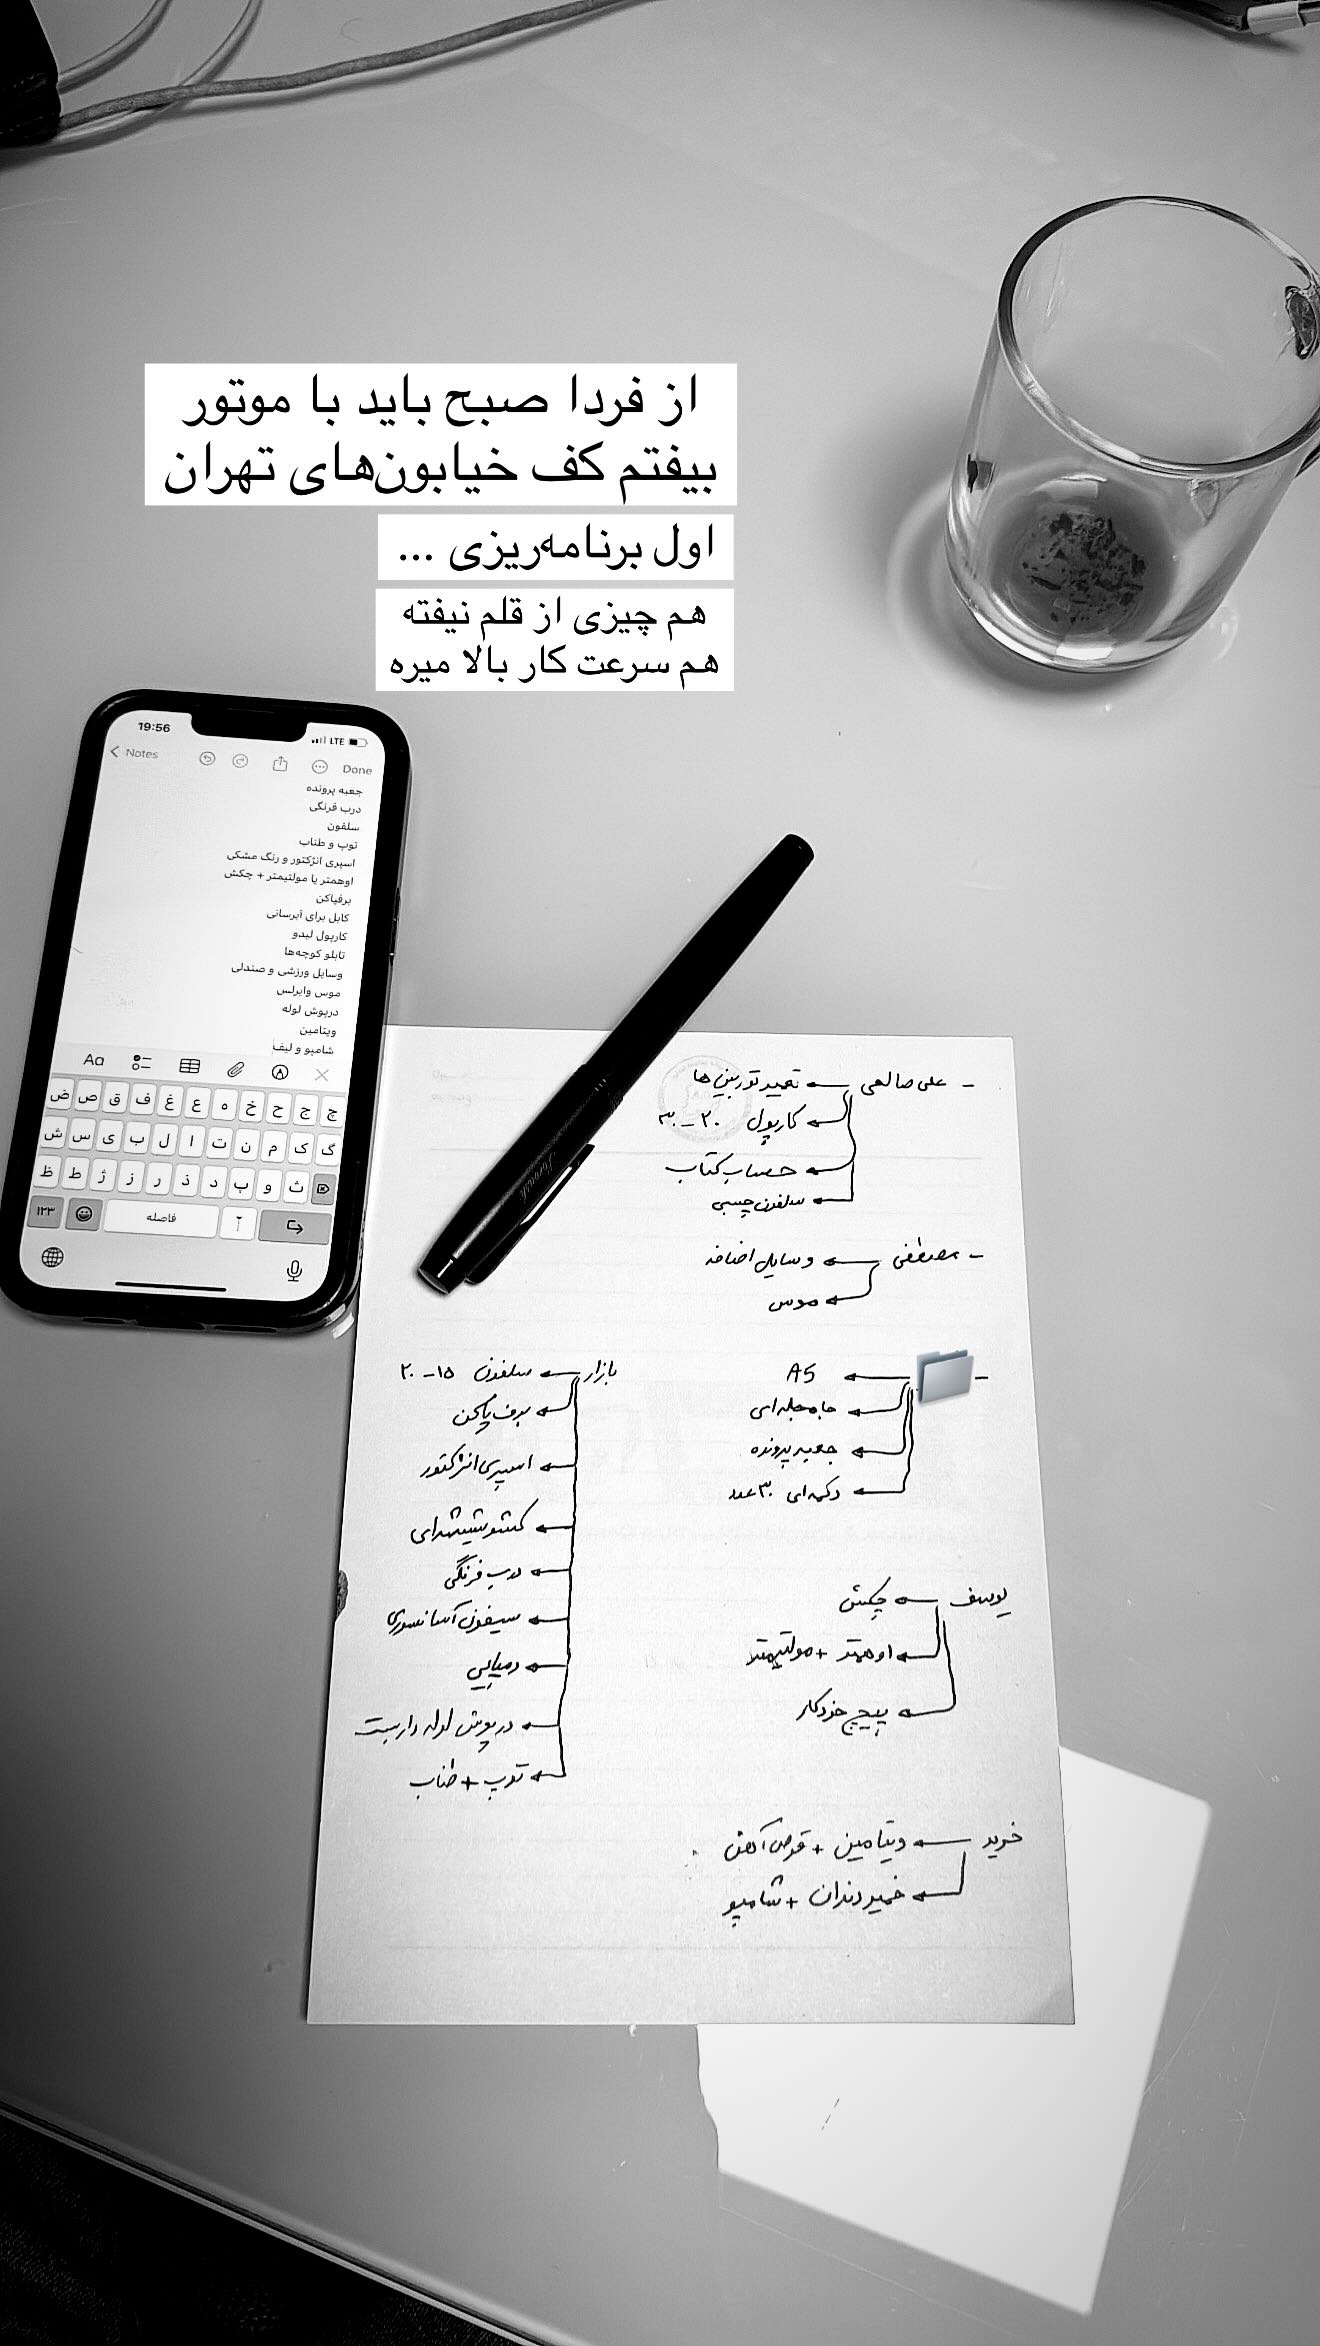 از فردا صبح باید با موتور
بیفتم کف خیابون‌های تهران
اول برنامه‌ریزی ...
هم چیزی از قلم نیفته
هم سرعت کار بالا میره
19:56
LTE
Notes
Done
جعبه پرونده
درب فرنگی
سلفون
توپ و طناب
اسپری انژکتور و رنگ مشکی
اوهمتر یا مولتیمتر + چکش
برفپاکن
کابل برای آبرسانی
کارپول لیدو
تابلو کوچه‌ها
وسایل ورزشی و صندلی
موس وایرلس
درپوش لوله
ویتامین
شامپو و لیف
Aa
ض ص ق ف غ ع ه خ ح ج چ
ش س ی ب ل ا ت ن م ک گ
ظ ط ژ ز ر ذ د پ و ث
۱۲۳
فاصله
- علی صالحی تعمیر دوربین‌ها
کارپول ۲۰ - ۳۰
حساب کتاب
سلفون چسبی
- مصطفی وسایل اضافه
موس
- A5
جامجله‌ای
جعبه پرونده
دکمه‌ای ۳۰ عدد
یوسف چکش
اوهمتر + مولتیمتر
پیچ خودکار
خرید ویتامین + قرص آهن
خمیردندان + شامپو
بازار سلفون ۱۵ - ۲۰
برف پاکن
اسپری انژکتور
کشو شیشه‌ای
درب فرنگی
سیفون آسانسوری
دمپایی
درپوش لوله داربست
توپ + طناب